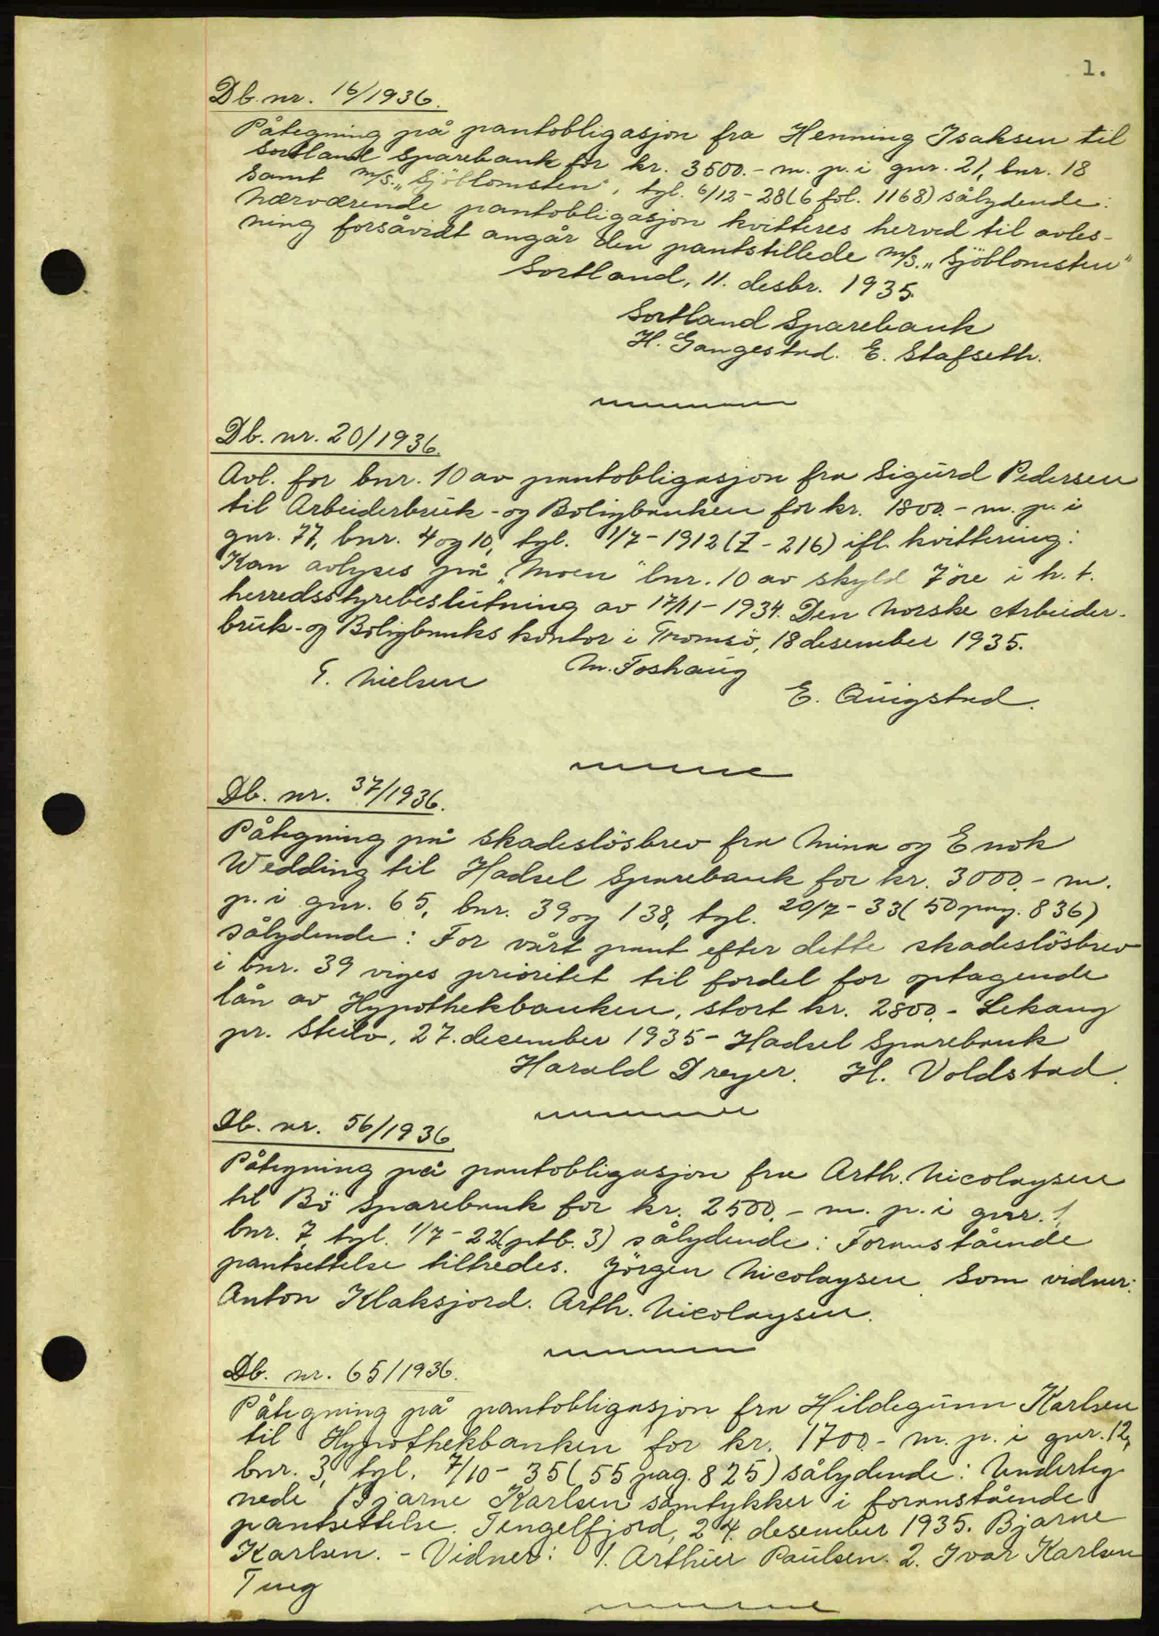 1.
Db. nr. 16/1936.
Påtegning på pantobligasjon fra Henning Isaksen til
Sortland Sparebank for kr. 3500.- m. p. i gnr. 21, bnr. 18
samt m/s. „Sjöblomsten", tgl. 6/12-28 (6 fol. 1168) sålydende:
Nærværende pantobligasjon kvitteres herved til avles-
ning forsåvidt angår den pantstillede m/s. „Sjöblomsten"
Sortland, 11. desbr. 1935.
Sortland Sparebank
H. Gangestad. E. Stafseth.
Db. nr. 20/1936.
Avl. for bnr. 10 av pantobligasjon fra Sigurd Pedersen
til Arbeiderbruk- og Boligbanken for kr. 1800.- m. p. i
gnr. 77, bnr. 4 og 10, tgl. 1/7-1912 (Z-216) ifl. kvittering:
Kan avlyses på „Moen" bnr. 10 av skyld 7 öre i h. t.
herredsstyrebeslutning av 17/11-1934. Den Norske Arbeider-
bruk- og Boligbanks kontor i Tromsö, 18 desember 1935.
E. Nielsen M. Foshaug
E. Quigstad.
Db. nr. 37/1936.
Påtegning på skadeslösbrev fra Mina og Enok
Wedding til Hadsel Sparebank for kr. 3000.- m.
p. i gnr. 65, bnr. 39 og 138, tgl. 20/7-33 (50 pag. 836)
sålydende: For vårt pant efter dette skadeslösbrev
i bnr. 39 viges prioritet til fordel for optagende
lån av Hypothekbanken, stort kr. 2800.- Lekang
pr. Steilo, 27. december 1935- Hadsel Sparebank
Harald Dreyer. H. Voldstad.
Db. nr. 56/1936
Påtegning på pantobligasjon fra Arth. Nicolaysen
til Bö Sparebank for kr. 2500.- m. p. i gnr. 1,
bnr. 7, tgl. 1/7-22 (ptb. 3) sålydende: Foranstående
pantsettelse tiltredes. Jörgen Nicolaysen. Som vidner:
Anton Klaksjord. Arth. Nicolaysen.
Db. nr. 65/1936.
Påtegning på pantobligasjon fra Hildegunn Karlsen
til Hypothekbanken for kr. 1700.- m. p. i gnr. 12,
bnr. 3, tgl. 7/10-35 (55 pag. 825) sålydende: Underteg
nede Bjarne Karlsen samtykker i foranstående
pantsettelse. Tengelfjord, 24. desember 1935. Bjarne
Karlsen. - Vidner: 1. Arthur Paulsen. 2. Ivar Karlsen
Ting